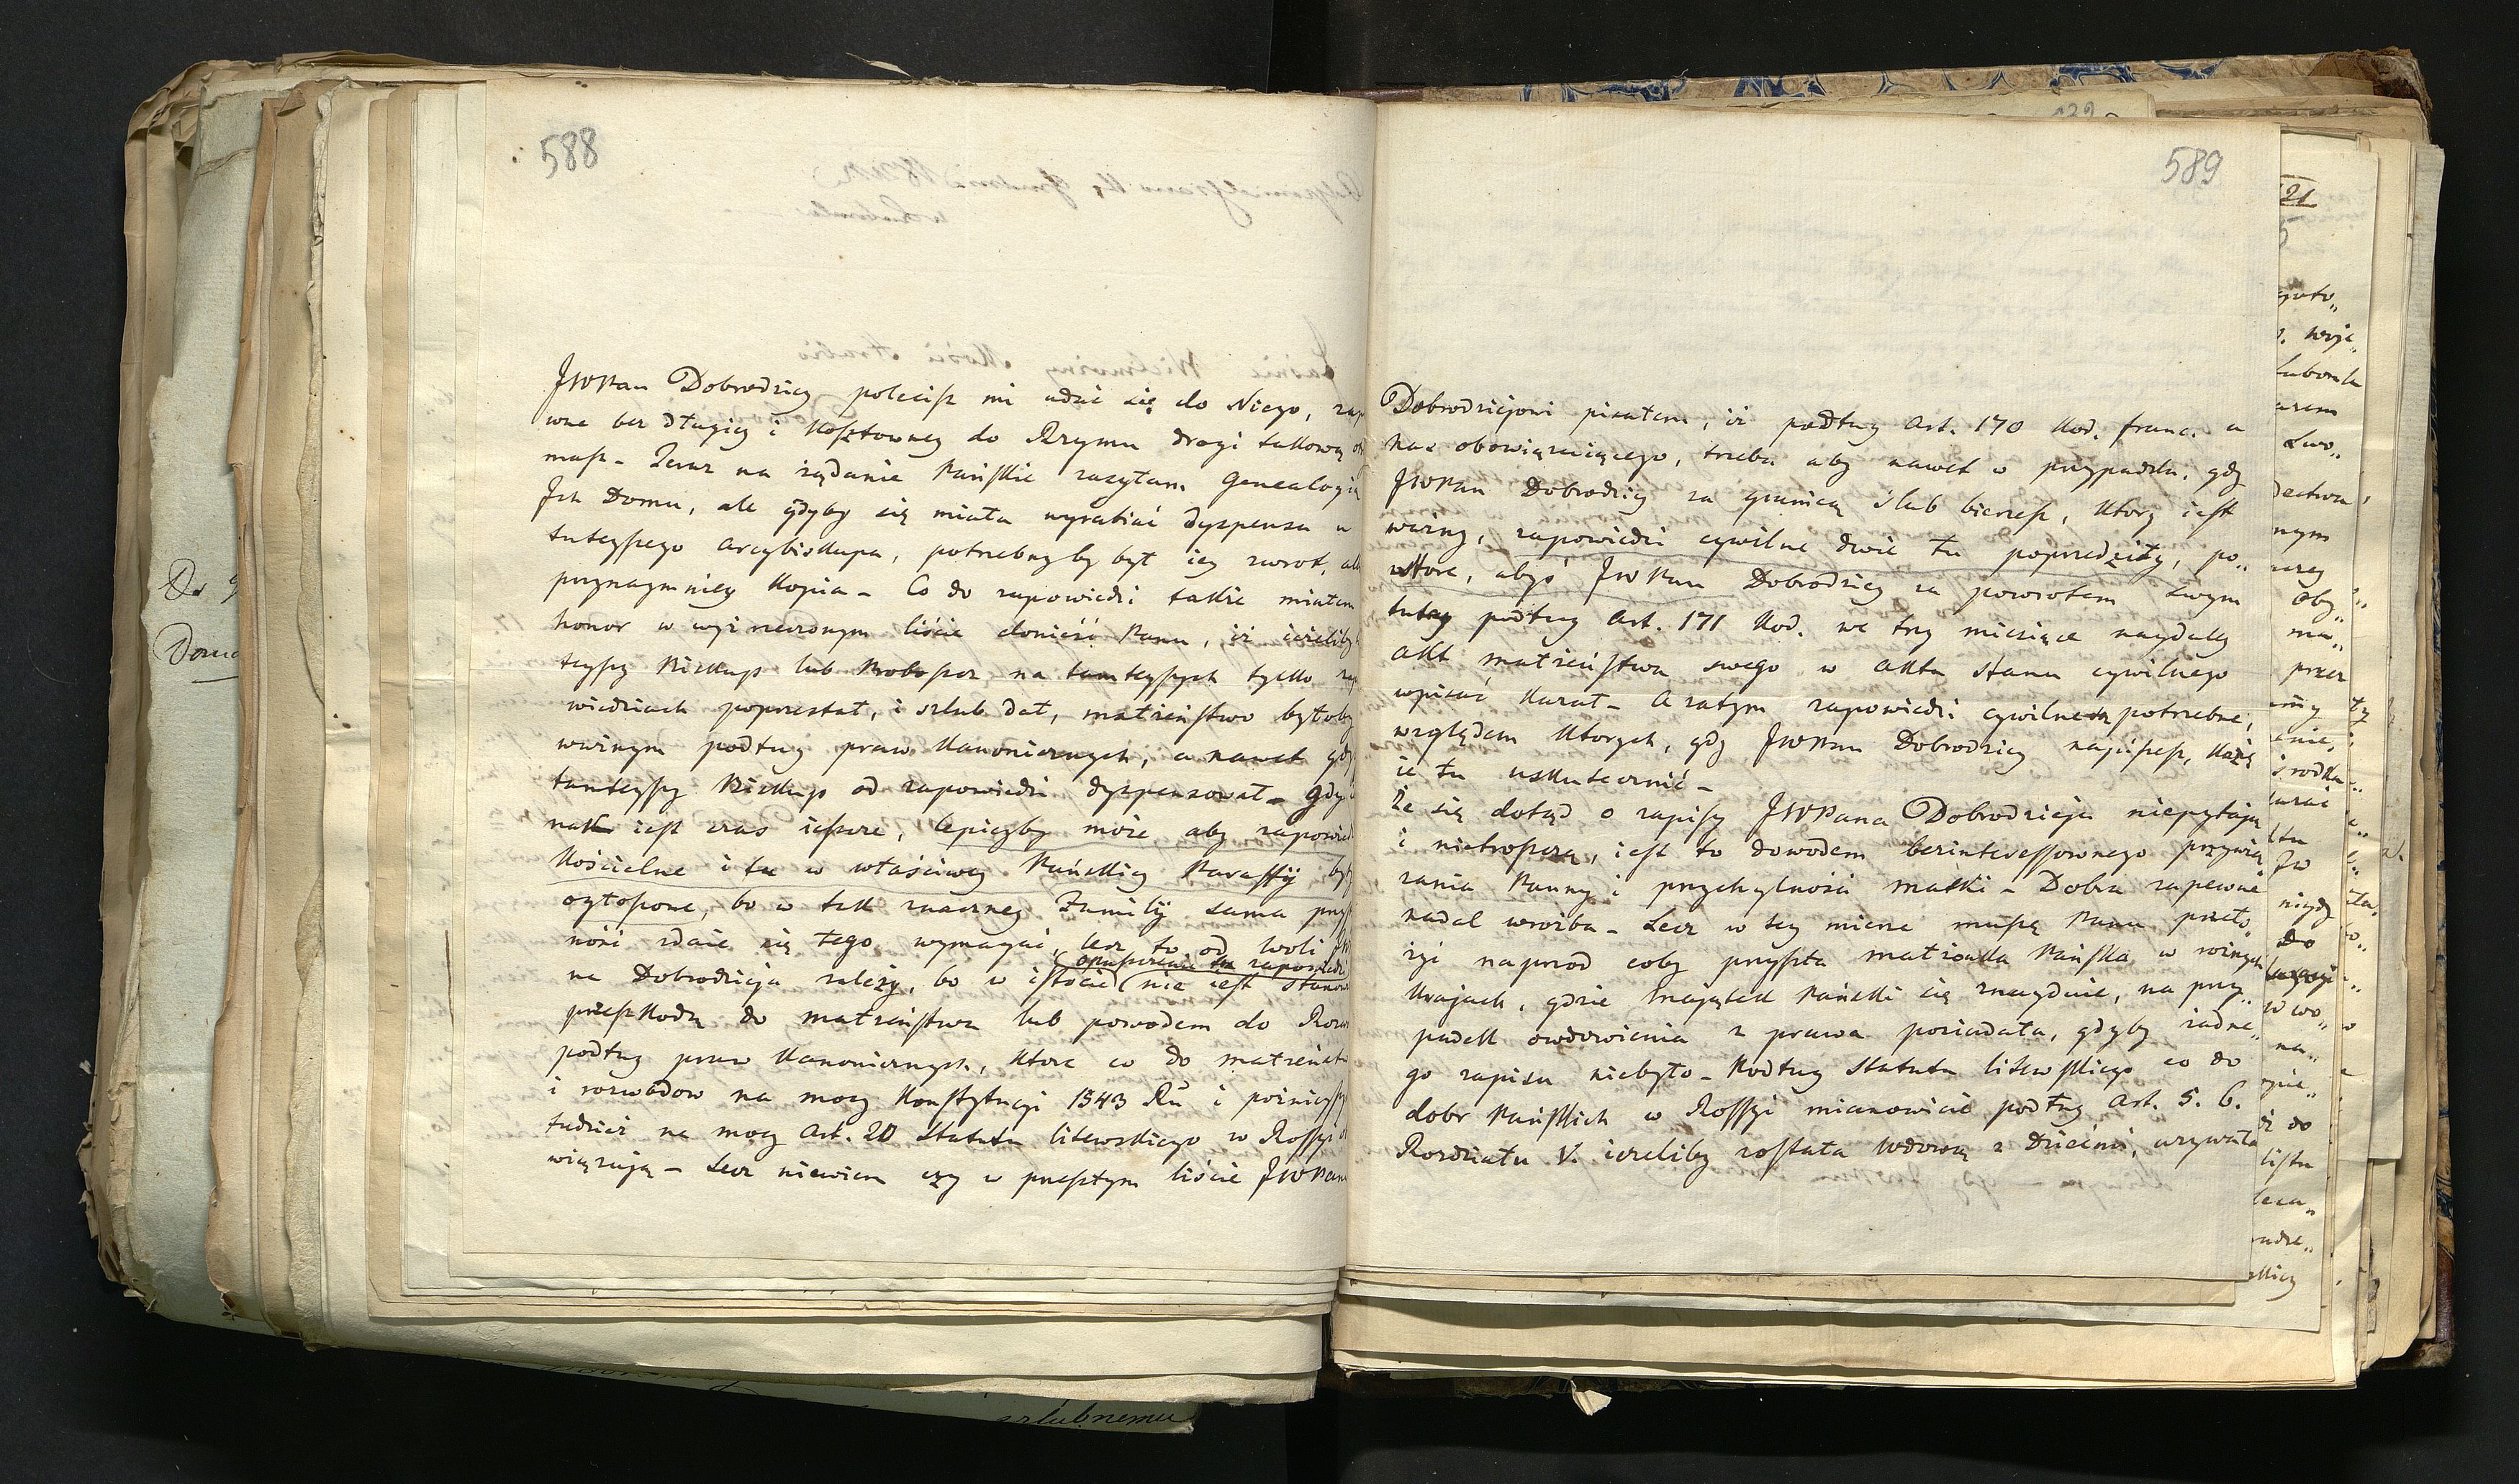 588
JWPan Dobrodziey polecisz mi udać się do Niego, zap
wne bez długiey i kosztowney do Rzymu drogi takową
masz - Teraz na żądanie Pańskie zasyłam Genealogią
Ich Domu, ale gdyby się miała wyrabiać dyspensa u
tuteyszego Arcybiskupa, potrzebny by był iey zwrot, alb
przynaymniey Kopia - Co do zapowiedzi także miałem
honor w wyż rzeczonym liście donieść Panu, iż ieżeliby
teyszy Biskup lub Proboszcz na tamteyszych tylko zap
wiedziach poprzestał, i szlub dał, małżeństwo byłoby
ważnym podług praw Kanonicznych, a nawet gdy
tamteyszy Biskup od zapowiedzi dyspensował - gdy
nak iest czas ieszcze, lepieyby może aby zapowied
Kościelne i tu w właściwey Pańskiey Paraffij były
ogłoszone, bo w tak znaczney Familij sama przyz
ność zdaie się tego wymagać, lecz to od woli JW
opuszczenie zapowiedzi
na Dobrodzieja zależy, bo w istocie nie iest stanow
przeszkodą do małżeństwa lub powodem do Rozw
podług praw Kanonicznych, które co do małżeństw
i rozwodow na mocy Konstytucyi 1543 Ru i poźnieyszy
tudzież na mocy Art. 20 Statutu litewskiego w Rossyi o
więzują - Lecz niewiem czy w przeszłym liście JWPan
589
Dobrodziejowi pisałem, iż podług Art. 170 Kod. franc. u
nas obowięzuiącego, trzeba aby nawet w przypadku, gdy
JWPan Dobrodziey za granicą ślub bierzesz, ktory iest
ważny, zapowiedzi cywilne dwie tu poprzedziły, po„
wtore, abyś JWPan Dobrodziey za powrotem swym
tutay podług Art. 171 Kod. we trzy miesiące naydaley
akt małżeństwa swego w akta stanu cywilnego
wpisać kazał - A zatym zapowiedzi cywilne potrzebne,
względem ktorych, gdy JWPan Dobrodziey napiszesz, każę
ie tu uskutecznić -
Że się dotąd o zapisy JWPana Dobrodzieja niepytają
i nietroszczą, iest to dowodem bezinteressownego przywią
zania Panny i przychylności matki - Dobra zapewne
nadal wrożba - Lecz w tey mierze muszę Panu przeło„
żyć naprzod coby przyszła małżonka Pańska w rożnych
Krajach, gdzie majątek Pański się znayduie, na przy„
padek owdowienia z prawa posiadała, gdyby żadne„
go zapisu niebyło - Podług Statutu litewskiego co do
dobr Pańskich w Rossyi mianowicie podług Art. 5. 6.
Rozdziału V. ieżeliby została wdową z Dziećmi, używała